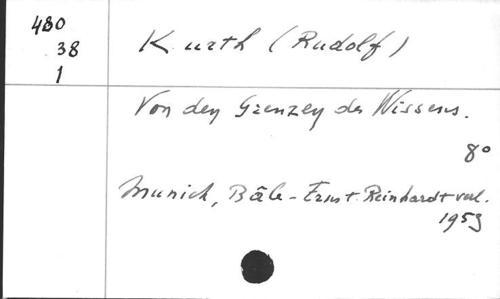 480
38
1
Kurth (Rudolf)
Von den Grenzen des Wissens.
8º
Munich, Bâle - Ernst Reinhardt verl.
1953